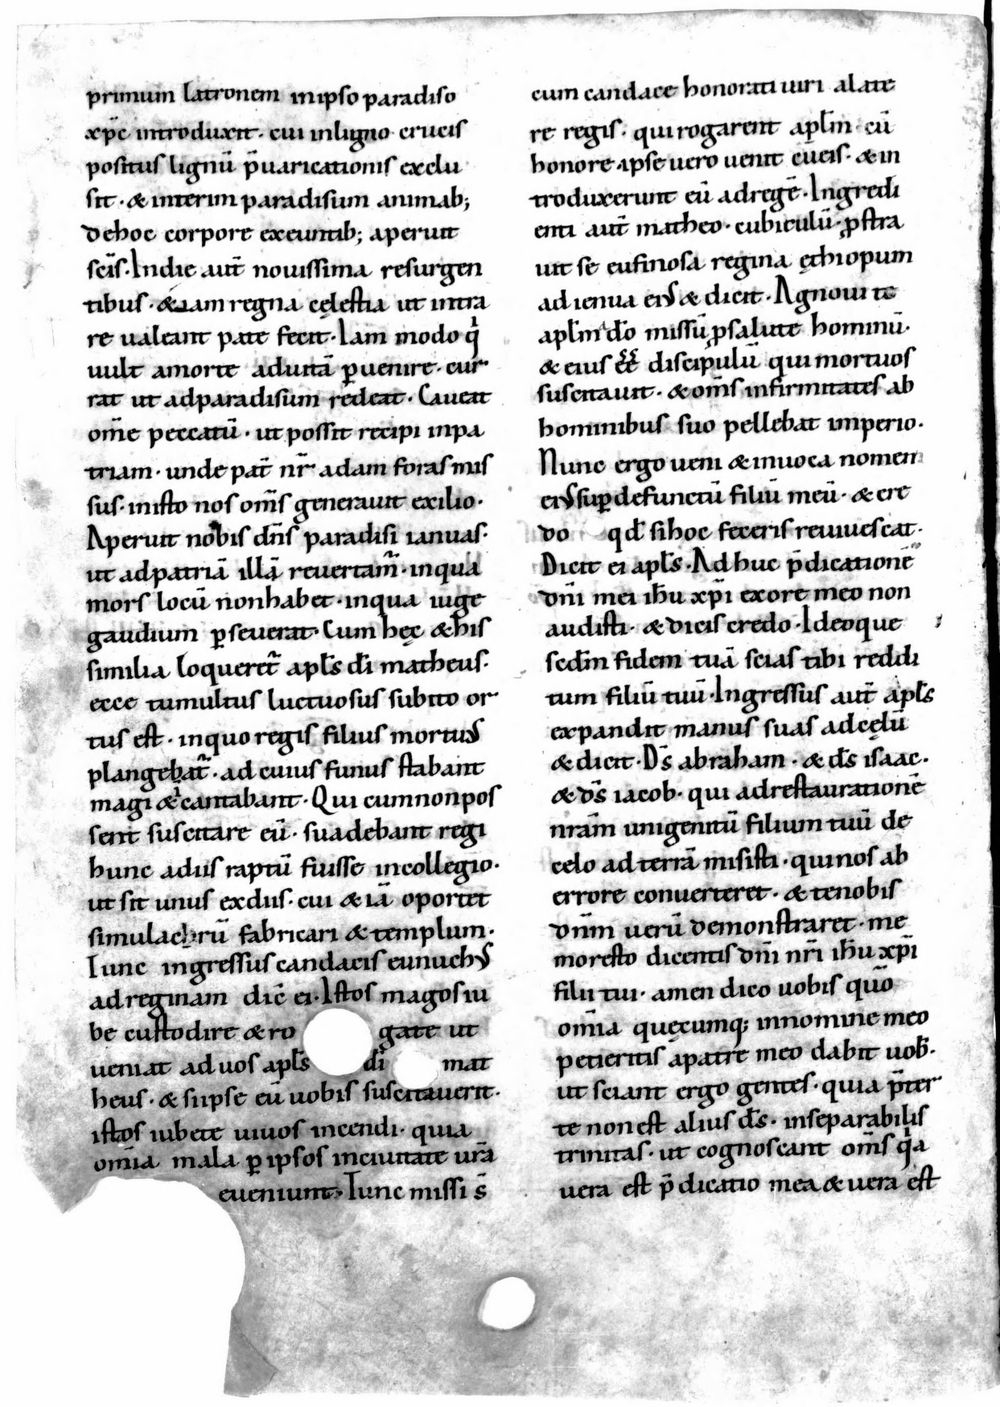 primum latronem inipso paradiso
xp̄c introduxit· cui inligno crucis
positus lignū p̄uaricationis exclu
sit· & interim paradisum animab;
dehoc corpore exeuntib; aperuit
sc̄is· Indie aut̄ nouissima resurgen
tibus· & iam regna cęlestia ut intra
re ualeant pate fecit· Iam modo q
uult amorte aduitā ꝑuenire· cur
rat ut adparadisum redeat· Caueat
om̄e peccatū· ut possit recipi inpa
triam· unde pat̄ nr̄ adam foras mis
sus· inisto nos om̄s generauit exilio·
Aperuit nobis dn̄s paradisi ianuas·
ut adpatriā illā reuertam̄· inqua
mors locū nonhabet· inqua iuge
gaudium ꝑseuerat· Cum hęc & his
similia loqueret̄ apl̄s dī matheus·
ecce tumultus luctuosus subito or
tus est· inquo regis filius mortuus
plangebat̄· ad cuius funus stabant
magi & cantabant· Qui cumnonpos
sent suscitare eū· suadebant regi
hunc adiis raptū fuisse incollegio·
ut sit unus exdiis· cui & iā oportet
simulachrū fabricari & templum·
Tunc ingressus candacis eunuchus
adreginam dic̄ ei· Istos magos iu
be custodire & ro gate ut
ueniat ad uos apl̄s dī mat
heus· & siipse eū uobis suscitauerit·
istos iubete uiuos incendi· quia
om̄ia mala ꝑ ipsos inciuitate ur̄a
eueniunt· Tunc missi s̄
cum candace honorati uiri alate
re regis· qui rogarent apl̄m· cū
honore ipse uero uenit cū eis· & in
troduxerunt eū adregē· Ingredi
enti aut̄ matheo· cubiculū· ꝓstra
uit se eufinosa regina ęthiopum
ad ienua eius & dicit· Agnoui te
apl̄m a dō missū ꝓsalute hominū·
& eius ēē discipulū qui mortuos
suscitauit· & om̄s infirmitates ab
hominibus suo pellebat imperio·
Nunc ergo ueni & inuoca nomen
eius suꝑ defunctū filiū meū· & cre
do qđ sihoc feceris reuiuescat·
Dicit ei apl̄s· Ad huc p̄dicationē
dn̄i mei ih̄u xp̄i exore meo non
audisti· & dicis credo· Ideoque
scd̄m fidem tuā scias tibi reddi
tum filiū tuū· Ingressus aut̄ apl̄s
expandit manus suas adcęlū
& dicit· Ds̄ abraham· & ds̄ isaac·
& ds̄ iacob· qui adrestaurationē
nr̄am unigenitū filium tuū de
celo ad terrā misisti· qui nos ab
errore conuerteret· & tenobis
dn̄m uerū demonstraret· me
moresto dicentis dn̄i nr̄i ih̄u xp̄i
filii tui· amen dico uobis quō
om̄ia quęcumq; innomine meo
petieritis apatre meo dabit uob̄·
ut sciant ergo gentes· quia p̄ter
te non est alius ds̄· inseparabilis
trinitas· ut cognoscant om̄s qa
uera est p̄dicatio mea & uera est